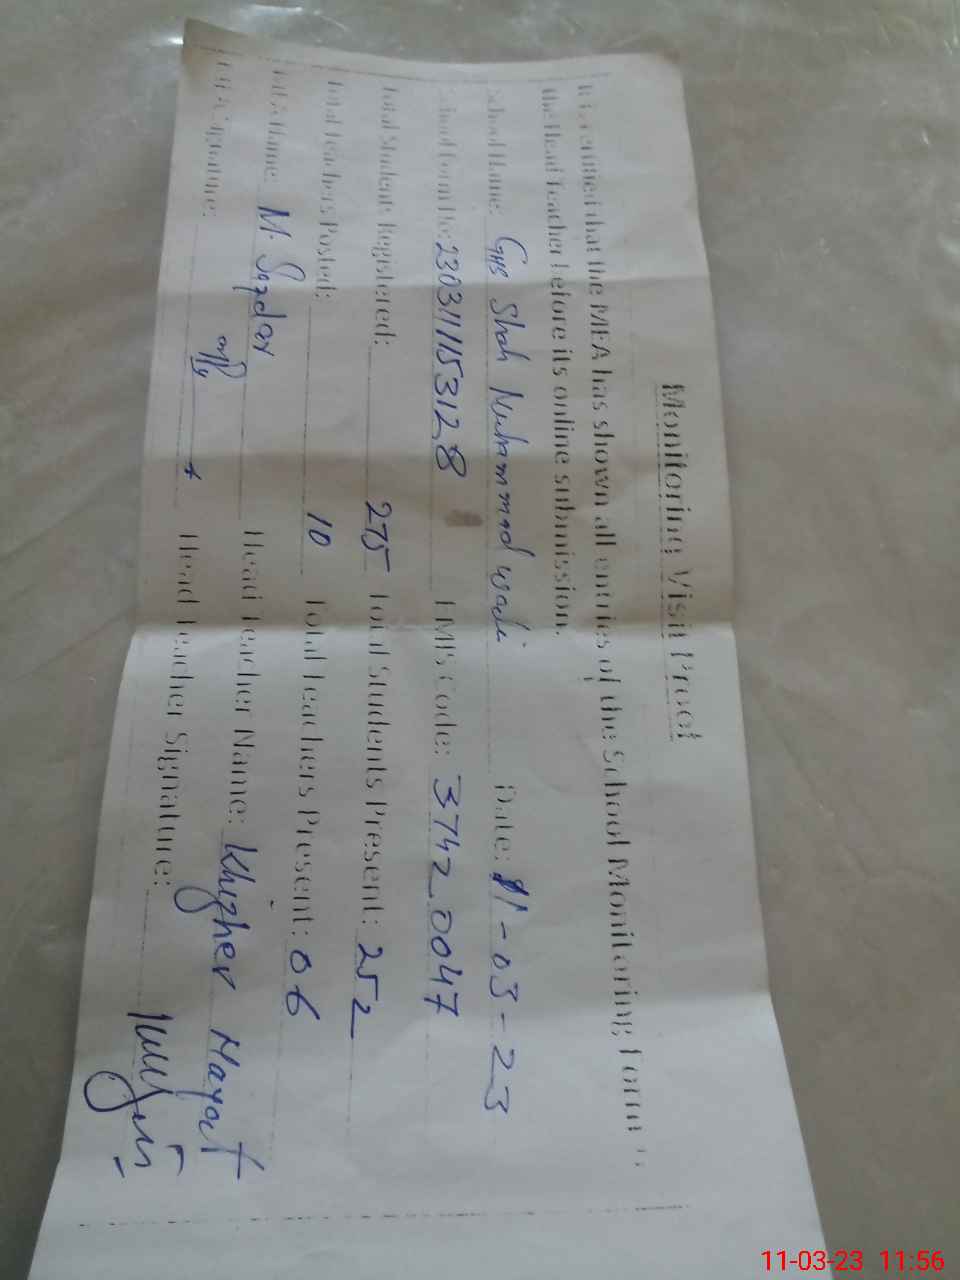 Monitoring Visit Proof
It is certified that the MEA has shown all entries of the School Monitoring Form to
the Head Teacher before its online submission.
School Name: GHS Shah Muhammad wadi Date: 11-03-23
School Form No: 23031115312 8 EMIS Code: 3742 0047
Total Students Registered: 275 Total Students Present: 252
Total Teachers Posted: 10 Total Teachers Present: 06
MEA Name: M. Safdar Head Teacher Name: Khizher Hayat
MEA Signature: Head Teacher Signature:
11-03-23 11:56